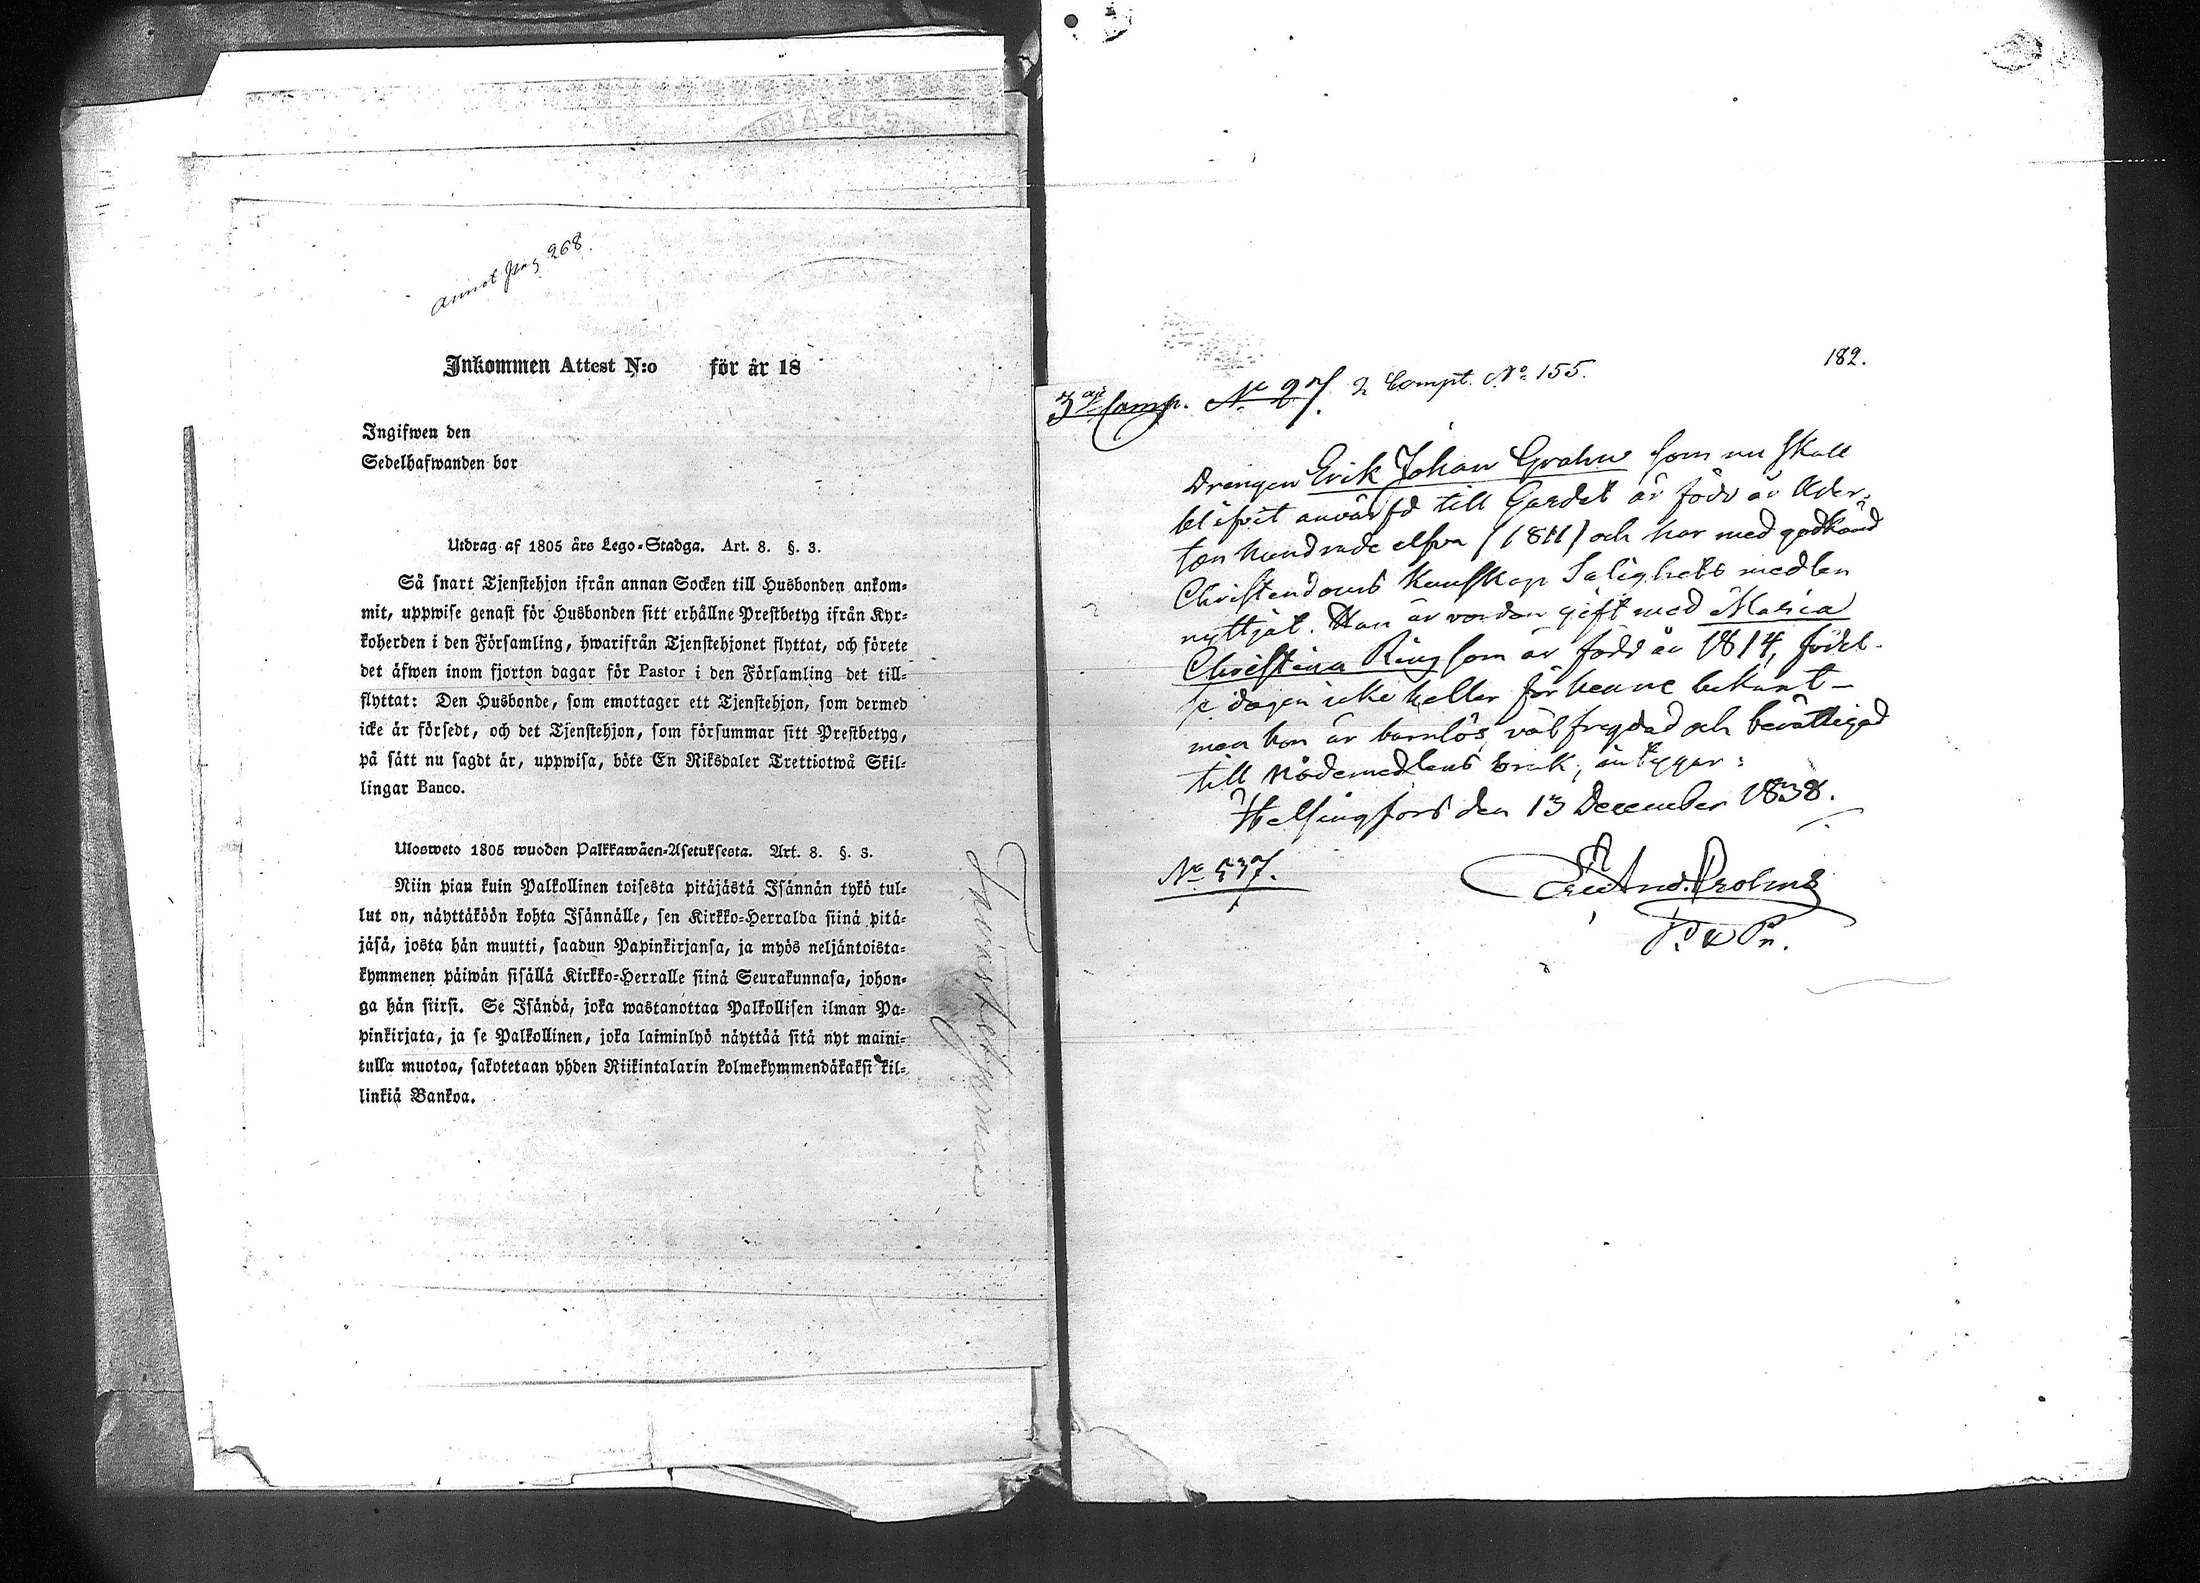 Annot pag 268.
Inkommen Attest N:o för år 18
Ingifwen den
Sedelhafwanden bor
Utdrag af 1805 års Lego-Stadga. Art. 8. §. 3.
Så snart Tjenstehjon ifrån annan Socken till Husbonden ankom-
mit, uppwise genast för Husbonden sitt erhållne Prestbetyg ifrån Kyr-
koherden i den Församling, hwarifrån Tjenstehjonet flyttat, och förete
det äfwen inom fjorton dagar för Pastor i den Församling det till-
flyttat: Den Husbonde, som emottager ett Tjenstehjon, som dermed
icke är försedt, och det Tjenstehjon, som försummar sitt Prestbetyg,
på sätt nu sagdt är, uppwisa, böte En Riksdaler Trettiotwå Skil-
lingar Banco.
Ulosweto 1805 wuoden Palkkawäen-Asetuksesta. Art. 8. §. 3.
Niin pian kuin Palkollinen toisesta pitäjästä Isännän tykö tul-
lut on, näyttäköön kohta Isännälle, sen Kirkko-Herralda siinä pitä-
jäsä, josta hän muutti, saadun Papinkirjansa, ja myös neljäntoista-
kymmenen päiwän sisällä Kirkko-Herralle siinä Seurakunnasa, johon-
ga hän siirsi. Se Isändä, joka wastanottaa Palkollisen ilman Pa-
pinkirjata, ja se Palkollinen, joka laiminlyö näyttää sitä nyt maini-
tulla muotoa, sakotetaan yhden Riikintalarin kolmekymmendäkaksi kil-
linkiä Bankoa.
182.
3dje Comp. No 27. 2 Compt. No 155.
Drengen Erik Johan Grahn som nu skall
blifvit anvärfd till Gardet är född år Ader-
ton hundrade elfva (1811) och har med godkänd
Christendoms kunskap Salighets medlen
nyttjat. Han är vorden gift med Maria
Christina Ring som är född år 1814, födel-
se dagen icke heller för henne bekant –
men hon är barnlös, välfrejdad och berättigad
till Nådemedlens bruk, intygar:
Helsingfors den 13 December 1838.
No 537.